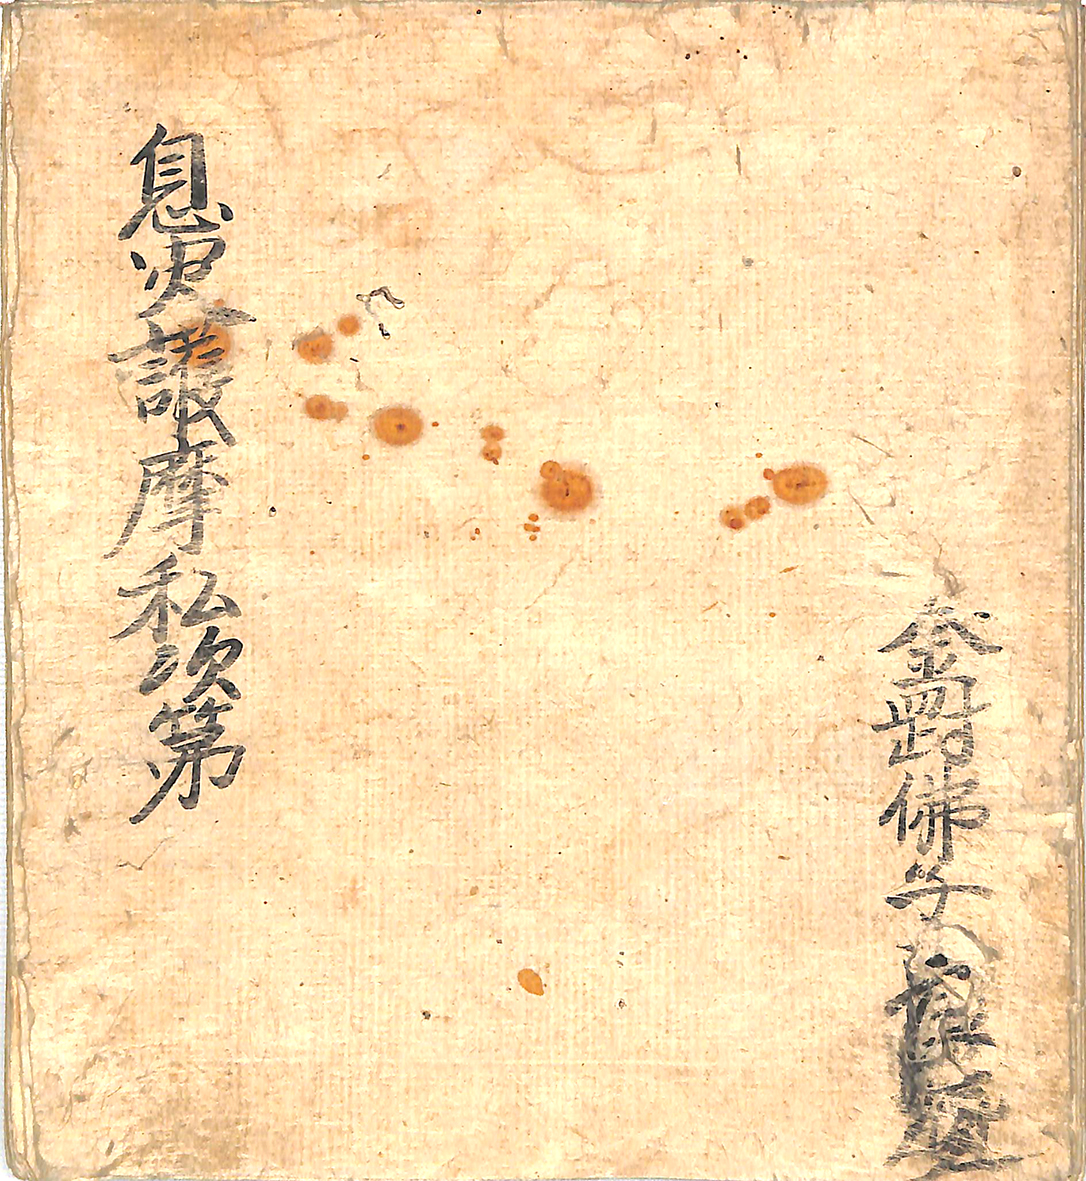 金剛佛子
息災護摩私次第